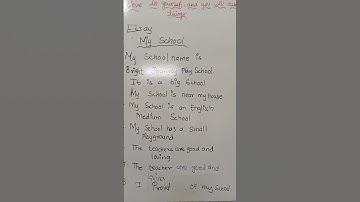 in yourself and get
Essay
My School
My School name is
Bright Play School
It is a big School
My School is near my house
My School is an English
Medium School
My School has a Small
Playground
The teachers are good and
loving.
The teacher are good and
loving
I Proud of my School.